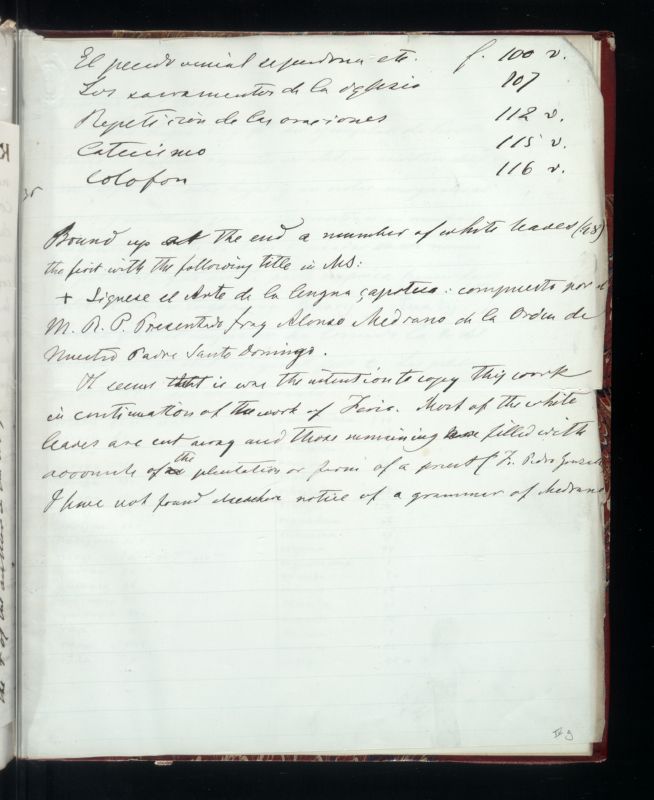 El pecado venial se perdona etc. f. 100 v.
Los sacramentos de la yglesia 107
Repetición de las oraciones 112 v.
Catecismo 115 v.
Colofon 116 v.
Bound up at the end a number of white leaves (48)
the first with the following title in MS:
+ Siguese el Arte de la lengua çapoteca: compuesto por el
M. R. P. Presentado fray Alonso Medrano de la Orden de
Nuestro Padre Santo Domingo.
It seems that is was the intention to copy this work
in continuation of the work of Feria. Most of the white
leaves are cut away and those remaining are filled with
accounts of the plantation or farm of a priest (Fr. Pedro
I have not found notice of a grammar of Medrano
IV 9